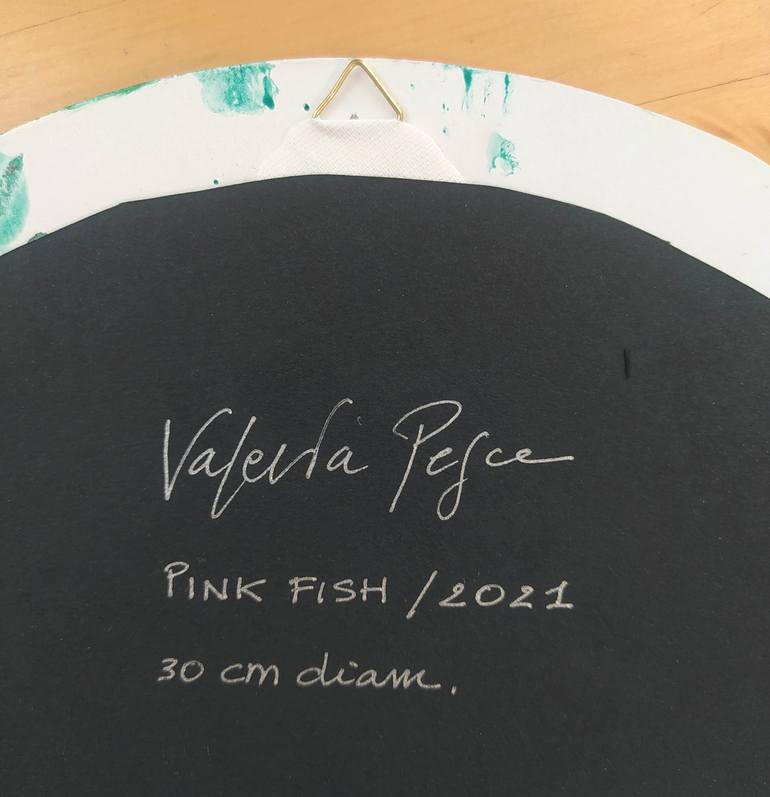 Valeria Pesce
PINK FISH / 2021
30 cm diam.